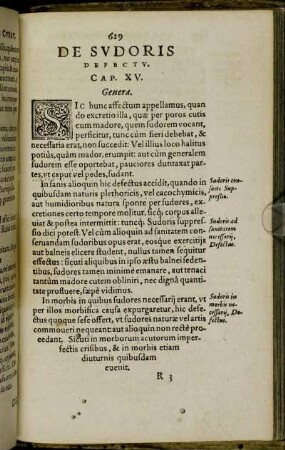 629
DE SVDORIS
DEFECTV.
CAP. XV.
Genera.
SIc hunc affectum appellamus, quan
do excretio illa, quæ per poros cutis
cum madore, quem sudorem vocant,
perficitur, tunc cùm fieri debebat, &
necessaria erat, non succedit: Vel illius loco halitus
potiùs, quàm mador, erumpit: aut cùm generalem
sudorem esse oportebat, pauciores duntaxat par-
tes, vt caput vel pedes, sudant.
In sanis alioquin hic defectus accidit, quando in
quibusdam naturis plethoricis, vel cacochymicis,
aut humidioribus natura sponte per sudores, ex-
cretiones certo tempore molitur, sicq; corpus alle-
uiat, & postea intermittit: tuncq; Sudoris suppres-
sio dici potest. Vel cùm alioquin ad sanitatem con-
seruandam sudoribus opus erat, eosque exercitijs
aut balneis elicere student, nullus tamen sequitur
effectus: sicuti aliquibus in ipso æstu balnei seden-
tibus, sudores tamen minimè emanare, aut tenaci
tantùm madore cutem obliniri, nec dignâ quanti-
tate profusos, sæpè vidimus.
In morbis in quibus sudores necessarij erant, vt
per illos morbifica causa expurgaretur, hic defe-
ctus quoque sese offert, vt sudores naturæ vel artis
commoueri nequeant aut alioquin non rectè pro-
cedant. Sicuti in morborum acutorum imper-
fectis crisibus, & in morbis etiam
diuturnis quibusdam
euenit.
R 3
Sudoris cri-
Sudoris ad
sanitatem
necessarij,
Defectus.
Sudoris in
morbis ne-
cessarij, De-
fectus.